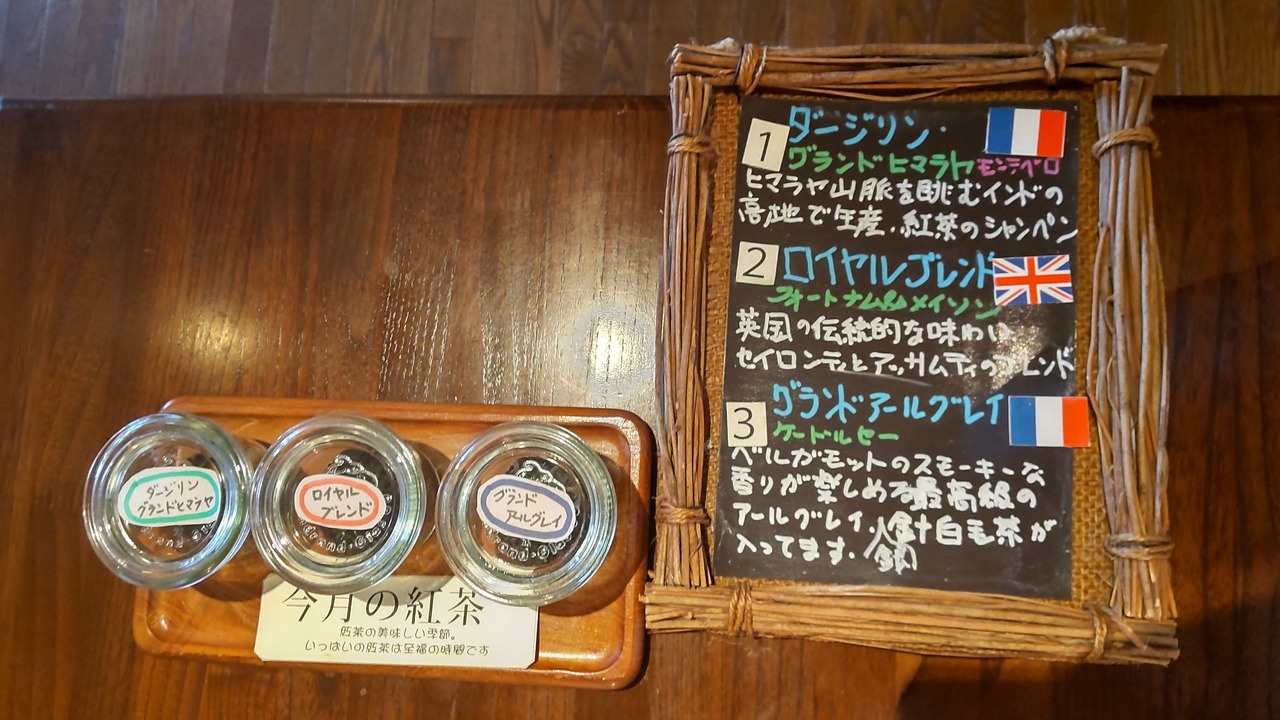 ダージリン
グランドヒマラヤ
ロイヤル
ブレンド
グランド
アールグレイ
今月の紅茶
紅茶の美味しい季節。
いっぱいの紅茶は至福の時間です
1 ダージリン・
グランドヒマラヤ モンテベロ
ヒマラヤ山脈を眺むインドの
高地で生産.紅茶のシャンペン
2 ロイヤルブレンド
フォートナム&メイソン
英国の伝統的な味わい
セイロンティとアッサムティのブレンド
3 グランドアールグレイ
クードルセー
ベルガモットのスモーキーな
香りが楽しめる最高級の
アールグレイ. 針白毛茶が
入ってます.